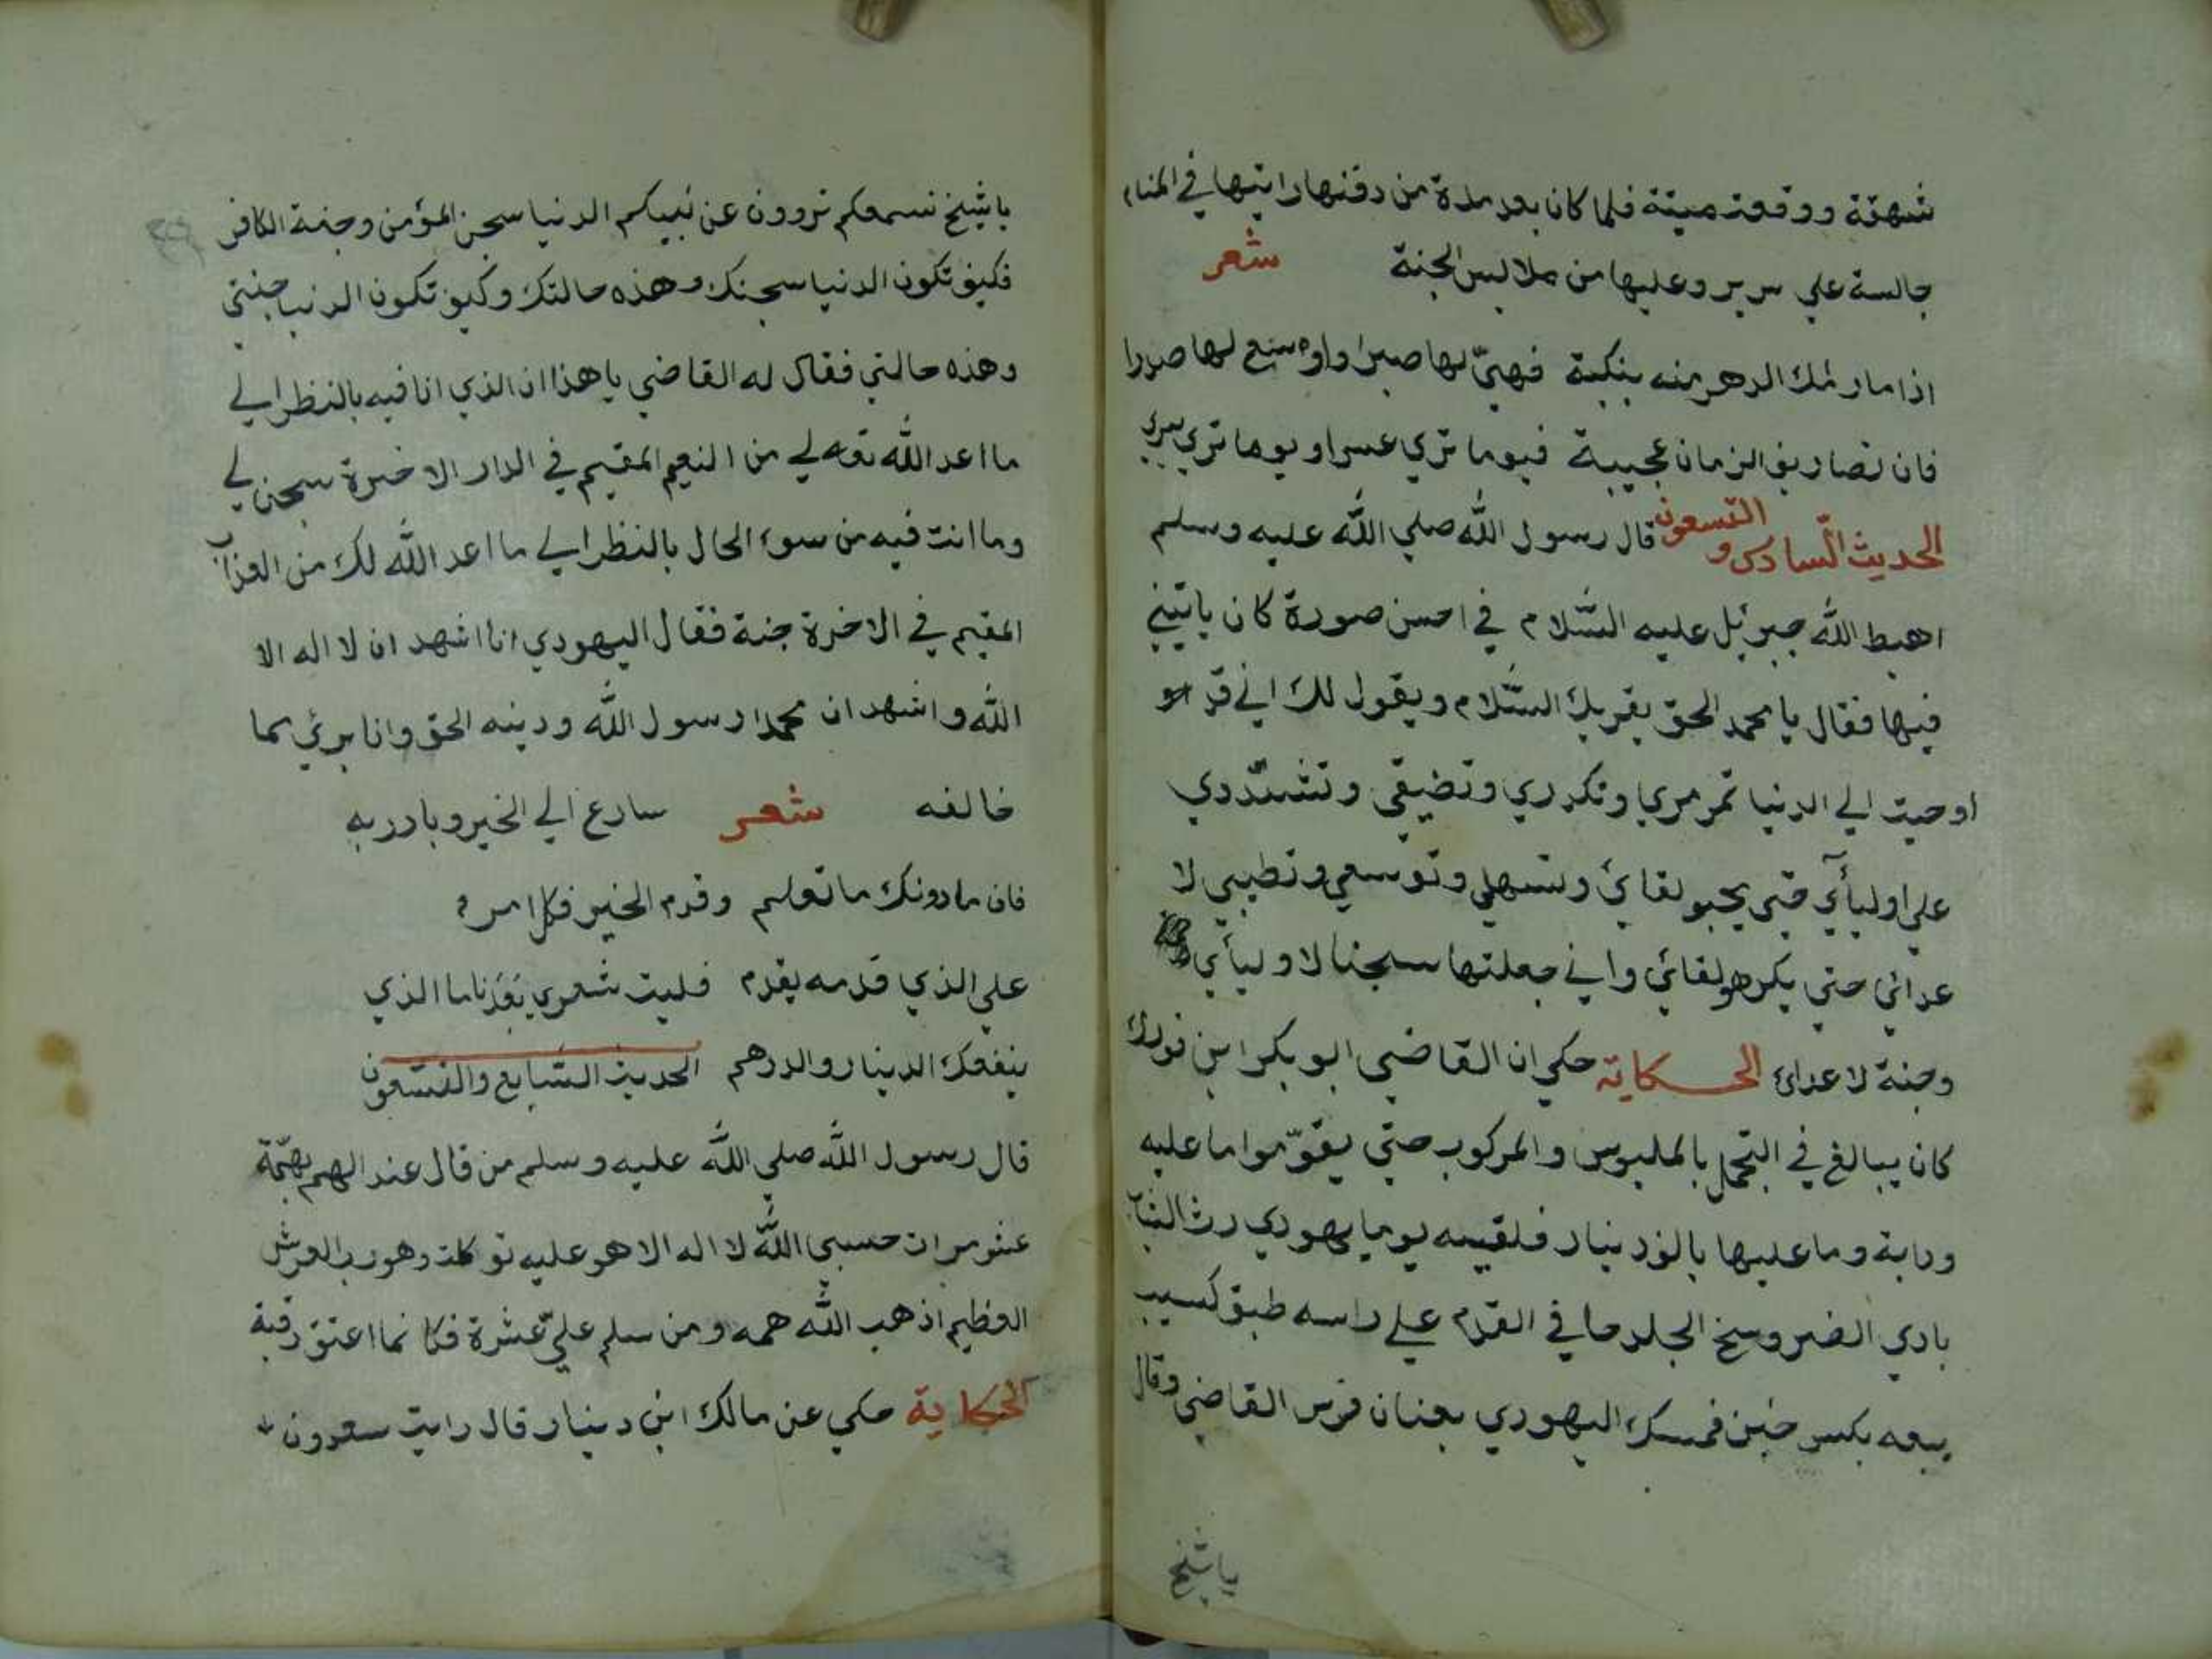 شهقة ووقعت ميتة فلما كان بعد مدة من دفنها رايتها في المنام
جالسة علي سرير وعليها من ملابس الجنة شعر
اذا ما رمك الدهر منه بنكبة فهيّ لها صبرا واوسع لها صدرا
فان تصاريف الزمان عجيبة فيوما تري عسرا ويوما تري يسرا
الحديث السادس والتسعون قال رسول الله صلي الله عليه وسلم
اهبط الله جبرئل عليه السّلام في احسن صورة كان ياتيني
فيها فقال يا محمد الحق يقريك السّلام ويقول لك اني قد
اوحيت الي الدنيا تمرمري وتكدري وتضيقي وتشدّدي
علي اوليأي حتي يحبو لقائ وتسهلي وتوسعي وتطيبي لا
عدائي حتي يكرهو لقائ واني جعلتها سجنا لاوليأي
وجنة لاعدائ الحكاية حكي ان القاضي ابو بكر ابن فورك
كان يبالغ في التجمل بالملبوس والمركوب حتي يقوّموا ما عليه
ودابة وما عليها بالف دينار فلقيه يوما يهودي رث الثياب
بادي الضر وسخ الجلد حافي القدم علي راسه طبق كسيب
يبيعه بكسر خبز فمسك اليهودي بعنان فرس القاضي وقال
يا شيخ
يا شيخ نسمعكم تروون عن نبيكم الدنيا سجن المؤمن وجنة الكافر
فكيف تكون الدنيا سجنك وهذه حالتك وكيف تكون الدنيا جنتي
وهذه حالتي فقال له القاضي يا هذا ان الذي انا فيه بالنظر الي
ما اعد الله تعه لي من النعيم المقيم في الدار الاخرة سجن لي
وما انت فيه من سوء الحال بالنظر الي ما اعد الله لك من العذاب
المقيم في الاخرة جنة فقال اليهودي انا اشهد ان لا اله الا
الله واشهد ان محمدا رسول الله ودينه الحق وانا برئ مما
خالفه شعر سارع الي الخير وبادر به
فان ما دونك ما تعلم وقدم الخير فكل امرء
علي الذي قدمه يقدم فليت شعري بعد ناما الذي
ينفعك الدينار والدرهم الحديث السّابع والتسّعون
قال رسول الله صلي الله عليه وسلم من قال عند الهم يهمّه
عشر مرات حسبي الله لا اله الا هو عليه توكلت وهو رب العرش
العظيم اذهب الله همه ومن سلم عليّ عشرة فكانما اعتق رقبة
الحكاية حكي عن مالك ابن دينار قال رايت سعدون